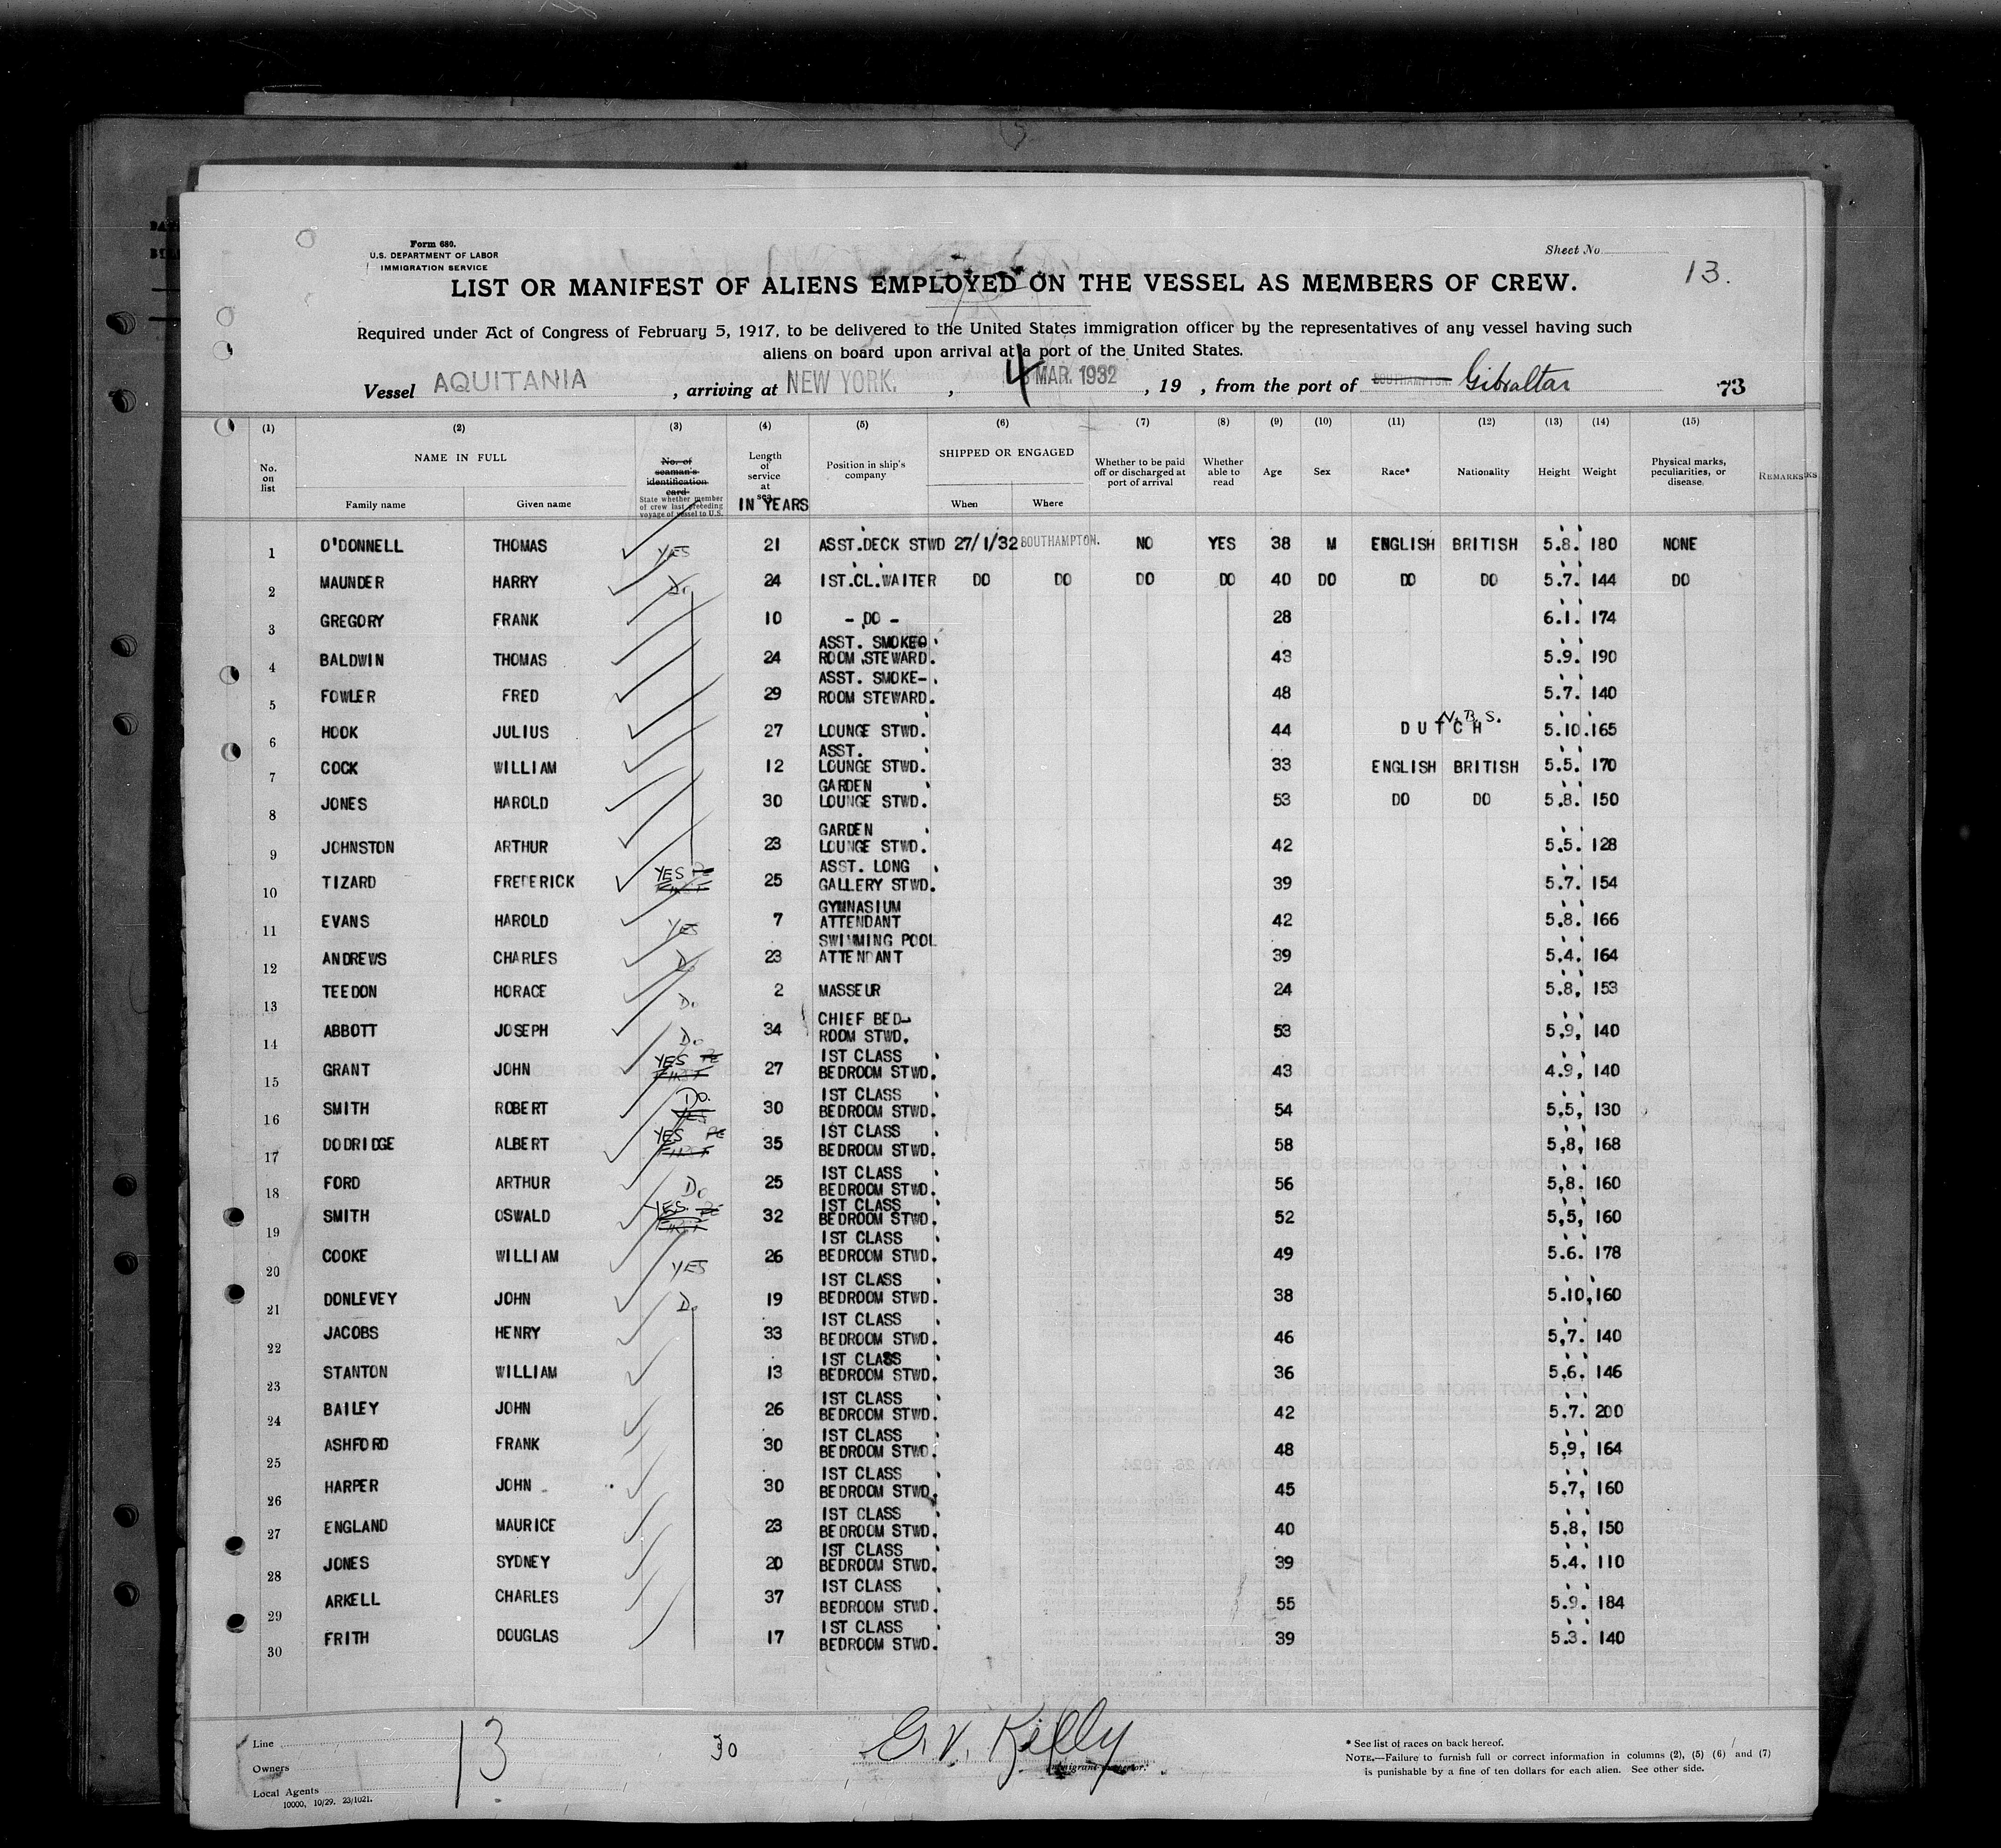 Form 680.
U.S. DEPARTMENT OF LABOR
IMMIGRATION SERVICE
Sheet No
13.
LIST OR MANIFEST OF ALIENS EMPLOYED ON THE VESSEL AS MEMBERS OF CREW.
Required under Act of Congress of February 5, 1917, to be delivered to the United States immigration officer by the representatives of any vessel having such
aliens on board upon arrival at a port of the United States.
Vessel AQUITANIA , arriving at NEW YORK. , 4 MAR. 1932 , 19 , from the port of SOUTHAMPTON. Gibraltar 73
(1) (2) (3) (4) (5) (6) (7) (8) (9) (10) (11) (12) (13) (14) (15)
No. on list
NAME IN FULL
Family name Given name
No. of seaman's identification card
State whether member of crew last preceding voyage of vessel to U.S.
Length of service at sea
IN YEARS
Position in ship's company
SHIPPED OR ENGAGED
When Where
Whether to be paid off or discharged at port of arrival
Whether able to read
Age Sex Race* Nationality Height Weight
Physical marks, peculiarities, or disease
REMARKS
1 O'DONNELL THOMAS YES 21 ASST.DECK STWD 27/1/32 SOUTHAMPTON. NO YES 38 M ENGLISH BRITISH 5.8. 180 NONE
2 MAUNDER HARRY Do 24 1ST.CL.WAITER DO DO DO DO 40 DO DO DO 5.7. 144 DO
3 GREGORY FRANK 10 - DO - 28 6.1. 174
4 BALDWIN THOMAS 24 ASST. SMOKE- ROOM STEWARD. 43 5.9. 190
5 FOWLER FRED 29 ASST. SMOKE- ROOM STEWARD. 48 5.7. 140
6 HOOK JULIUS 27 LOUNGE STWD. 44 DUTCH N.B.S. 5.10. 165
7 COCK WILLIAM 12 ASST. LOUNGE STWD. 33 ENGLISH BRITISH 5.5. 170
8 JONES HAROLD 30 GARDEN LOUNGE STWD. 53 DO DO 5.8. 150
9 JOHNSTON ARTHUR 23 GARDEN LOUNGE STWD. 42 5.5. 128
10 TIZARD FREDERICK YES FIRST 25 ASST. LONG GALLERY STWD. 39 5.7. 154
11 EVANS HAROLD YES 7 GYMNASIUM ATTENDANT 42 5.8. 166
12 ANDREWS CHARLES Do 23 SWIMMING POOL ATTENDANT 39 5.4. 164
13 TEEDON HORACE Do. 2 MASSEUR 24 5.8, 153
14 ABBOTT JOSEPH Do 34 CHIEF BED- ROOM STWD. 53 5.9, 140
15 GRANT JOHN YES FIRST 27 1ST CLASS BEDROOM STWD. 43 4.9, 140
16 SMITH ROBERT Do. YES 30 1ST CLASS BEDROOM STWD. 54 5.5, 130
17 DODRIDGE ALBERT YES FIRST 35 1ST CLASS BEDROOM STWD. 58 5,8, 168
18 FORD ARTHUR Do 25 1ST CLASS BEDROOM STWD. 56 5,8. 160
19 SMITH OSWALD YES. FIRST 32 1ST CLASS BEDROOM STWD. 52 5,5, 160
20 COOKE WILLIAM YES 26 1ST CLASS BEDROOM STWD. 49 5.6. 178
21 DONLEVEY JOHN Do 19 1ST CLASS BEDROOM STWD. 38 5.10, 160
22 JACOBS HENRY 33 1ST CLASS BEDROOM STWD. 46 5,7. 140
23 STANTON WILLIAM 13 1ST CLASS BEDROOM STWD. 36 5.6. 146
24 BAILEY JOHN 26 1ST CLASS BEDROOM STWD. 42 5.7. 200
25 ASHFORD FRANK 30 1ST CLASS BEDROOM STWD. 48 5,9, 164
26 HARPER JOHN 30 1ST CLASS BEDROOM STWD. 45 5.7, 160
27 ENGLAND MAURICE 23 1ST CLASS BEDROOM STWD. 40 5.8, 150
28 JONES SYDNEY 20 1ST CLASS BEDROOM STWD. 39 5.4. 110
29 ARKELL CHARLES 37 1ST CLASS BEDROOM STWD. 55 5.9. 184
30 FRITH DOUGLAS 17 1ST CLASS BEDROOM STWD. 39 5.3. 140
Line
Owners
Local Agents
10000, 10/29. 23/1021.
13
30
G. V. Kelly
* See list of races on back hereof.
NOTE.—Failure to furnish full or correct information in columns (2), (5) (6) and (7)
is punishable by a fine of ten dollars for each alien. See other side.